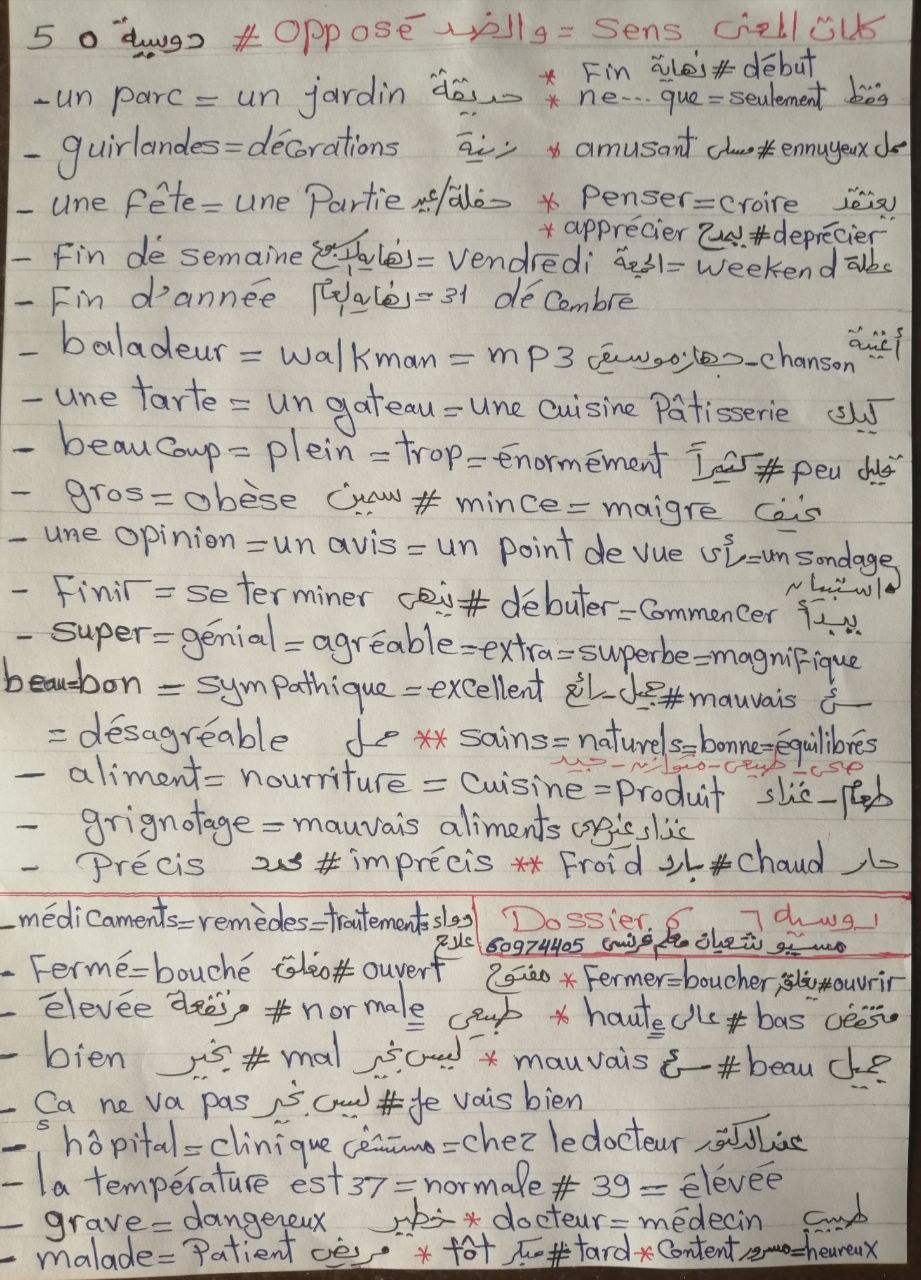 كلمات المعنى Sens = والضد Opposé # دوسية 5
* Fin نهاية # début
- un parc = un jardin حديقة * ne... que = seulement فقط
- guirlandes = décorations زينة * amusant مسلى # ennuyeux ممل
- une fête = une Partie حفلة/عيد * Penser = croire يعتقد
* apprécier يمدح # deprécier
- Fin dé semaine نهاية الاسبوع = vendredi الجمعة = weekend عطلة
- Fin d'année نهاية العام = 31 décembre
- baladeur = walkman = mp3 جهاز موسيقى - chanson أغنية
- une tarte = un gateau = une cuisine Pâtisserie كيك
- beaucoup = plein = trop = énormément كثيراً # peu قليل
- gros = obèse سمين # mince = maigre نحيف
- une opinion = un avis = un point de vue رأى = un sondage
استبيان
- Finir = se terminer ينهى # débuter = Commencer يبدأ
- super = génial = agréable = extra = superbe = magnifique
beau = bon = sympathique = excellent جميل - رائع # mauvais سئ
= désagréable ممل ** sains = naturels = bonne = équilibrés
صحى - طبيعى - متوازنة - جيد
- aliment = nourriture = Cuisine = Produit طعام - غذاء
- grignotage = mauvais aliments غذاء غير صحى
- Précis محدد # imprécis ** Froid بارد # chaud حار
- médicaments = remèdes = traitements دواء علاج
Dossier 6 دوسية ٦
مسيو شعبان معلم فرنسى 60974405
- Fermé = bouché مغلق # ouvert مفتوح * Fermer = boucher يغلق # ouvrir
- élevée مرتفعة # normale طبيعى * haute عالى # bas منخفض
- bien بخير # mal ليس بخير * mauvais سئ # beau جميل
- Ca ne va pas ليس بخير # Je vais bien
- hôpital = clinique مستشفى = chez le docteur عند الدكتور
- la température est 37 = normale # 39 = élévéé
- grave = dangereux خطير * docteur = médecin طبيب
- malade = Patient مريض * tôt مبكر # tard * Content مسرور = heureux